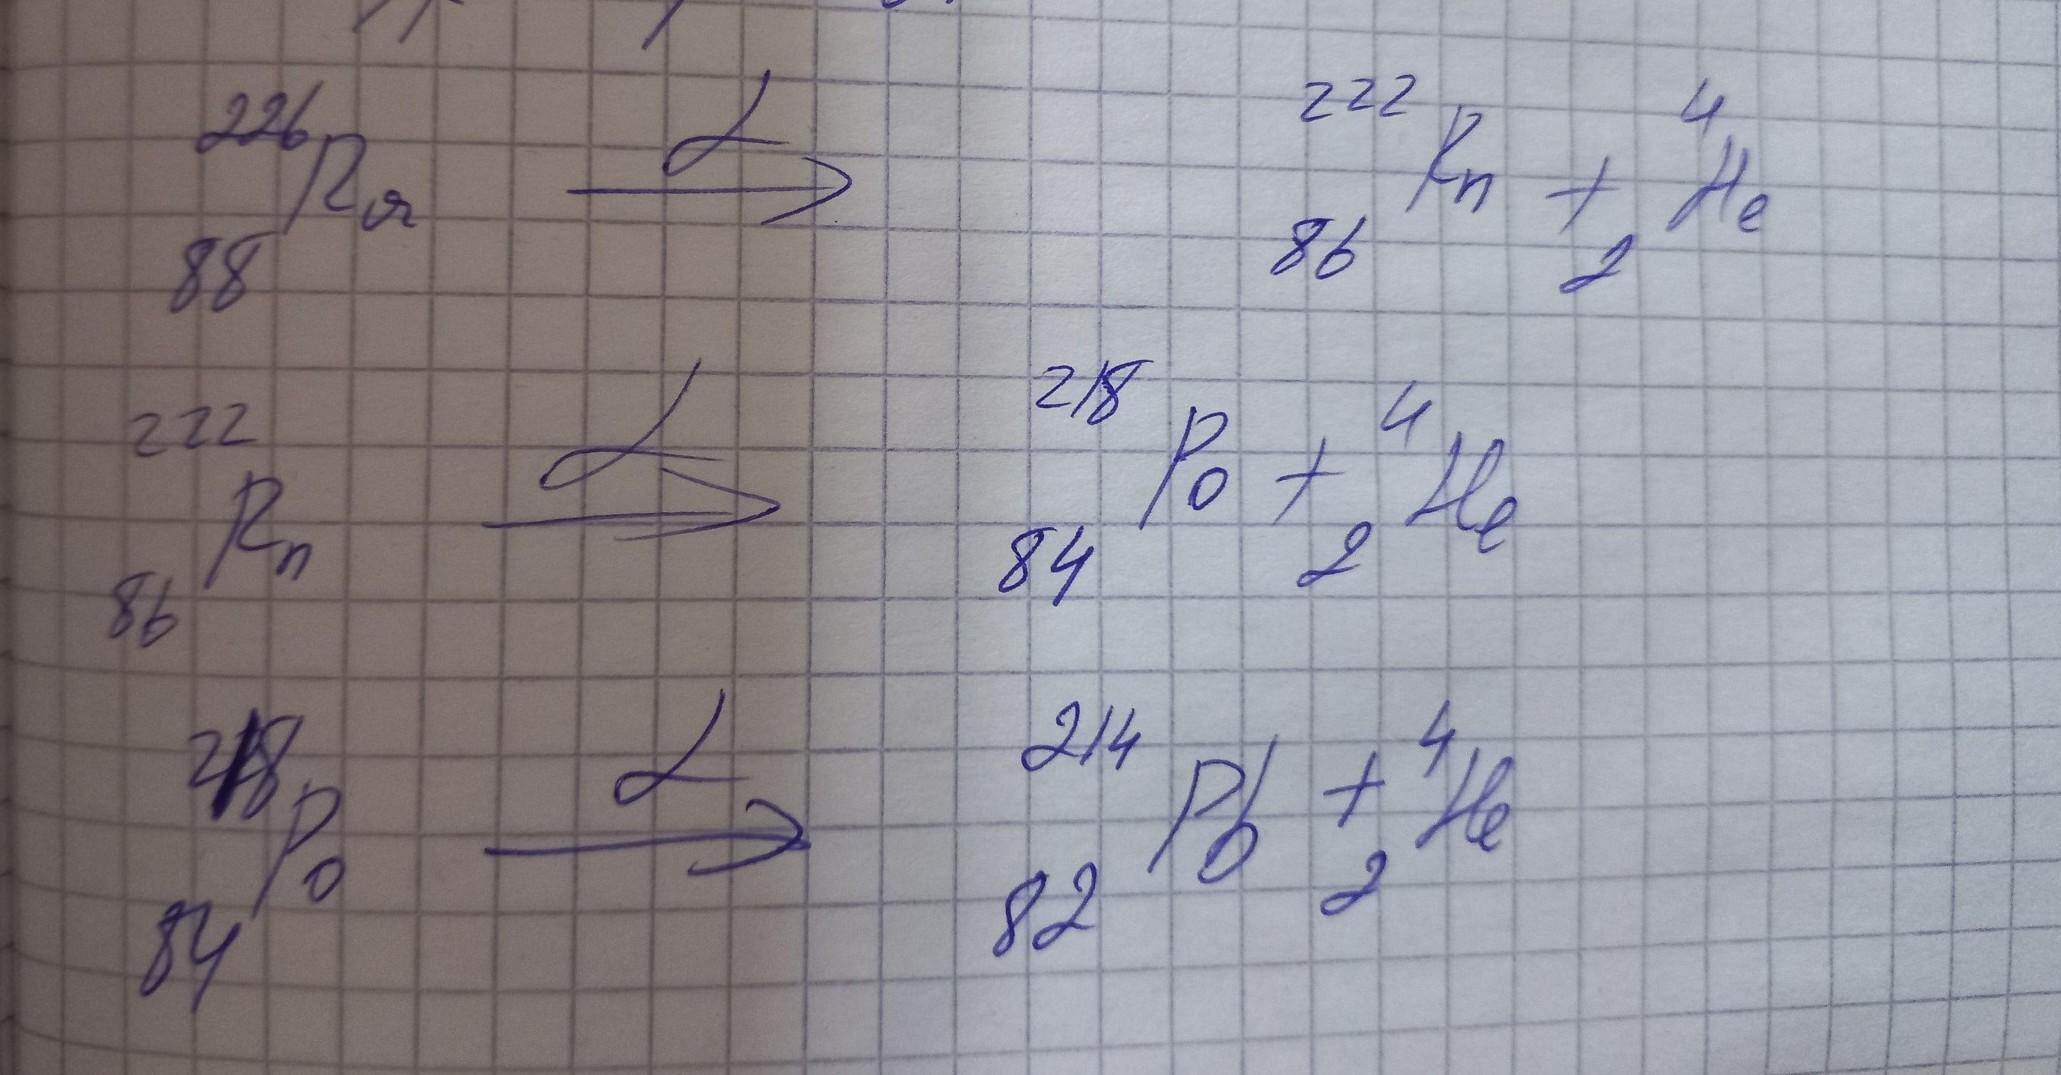 ²²⁶₈₈Ra —α→ ²²²₈₆Rn + ⁴₂He
²²²₈₆Rn —α→ ²¹⁸₈₄Po + ⁴₂He
²¹⁸₈₄Po —α→ ²¹⁴₈₂Pb + ⁴₂He